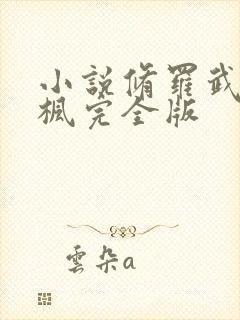 小説脩羅武
楓完全版
雲朵a